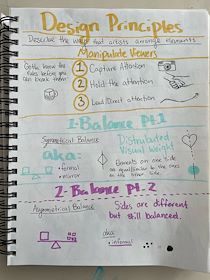 Design Principles
Describe the way that artists arrange elements
Manipulate Viewers
Gotta know the
rules before you
can break them
1 Capture Attention
2 Hold the attention
3 Lead/Direct attention
1-Balance Pt.1
Symmetrical Balance
aka:
• formal
• mirror
Distributed
Visual Weight
Elements on one side
are equal/similar to the ones
on the other side
2-Balance Pt. 2
Asymmetrical Balance
Sides are different
but still balanced.
aka:
• informal